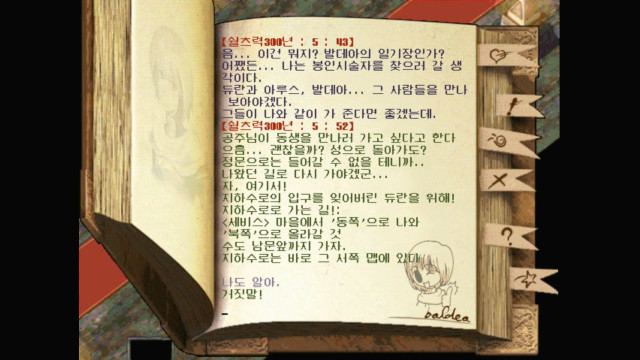 [쉴츠력300년 : 5 : 43]
음... 이건 뭐지? 발데아의 일기장인가?
어쨌든... 나는 봉인시술자를 찾으러 갈 생
각이다.
듀란과 아루스, 발데아... 그 사람들을 만나
보아야겠다.
그들이 나와 같이 가 준다면 좋겠는데.
[쉴츠력300년 : 5 : 52]
공주님이 동생을 만나러 가고 싶다고 한다
으흠... 괜찮을까? 성으로 돌아가도?
정문으로는 들어갈 수 없을 테니까..
나왔던 길로 다시 가야겠군...
자, 여기서!
지하수로의 입구를 잊어버린 듀란을 위해!
지하수로로 가는 길!:
<세비스> 마을에서 '동쪽'으로 나와
'북쪽'으로 올라갈 것
수도 남문앞까지 가자.
지하수로는 바로 그 서쪽 맵에 있다
나도 알아.
거짓말!
baldea
?